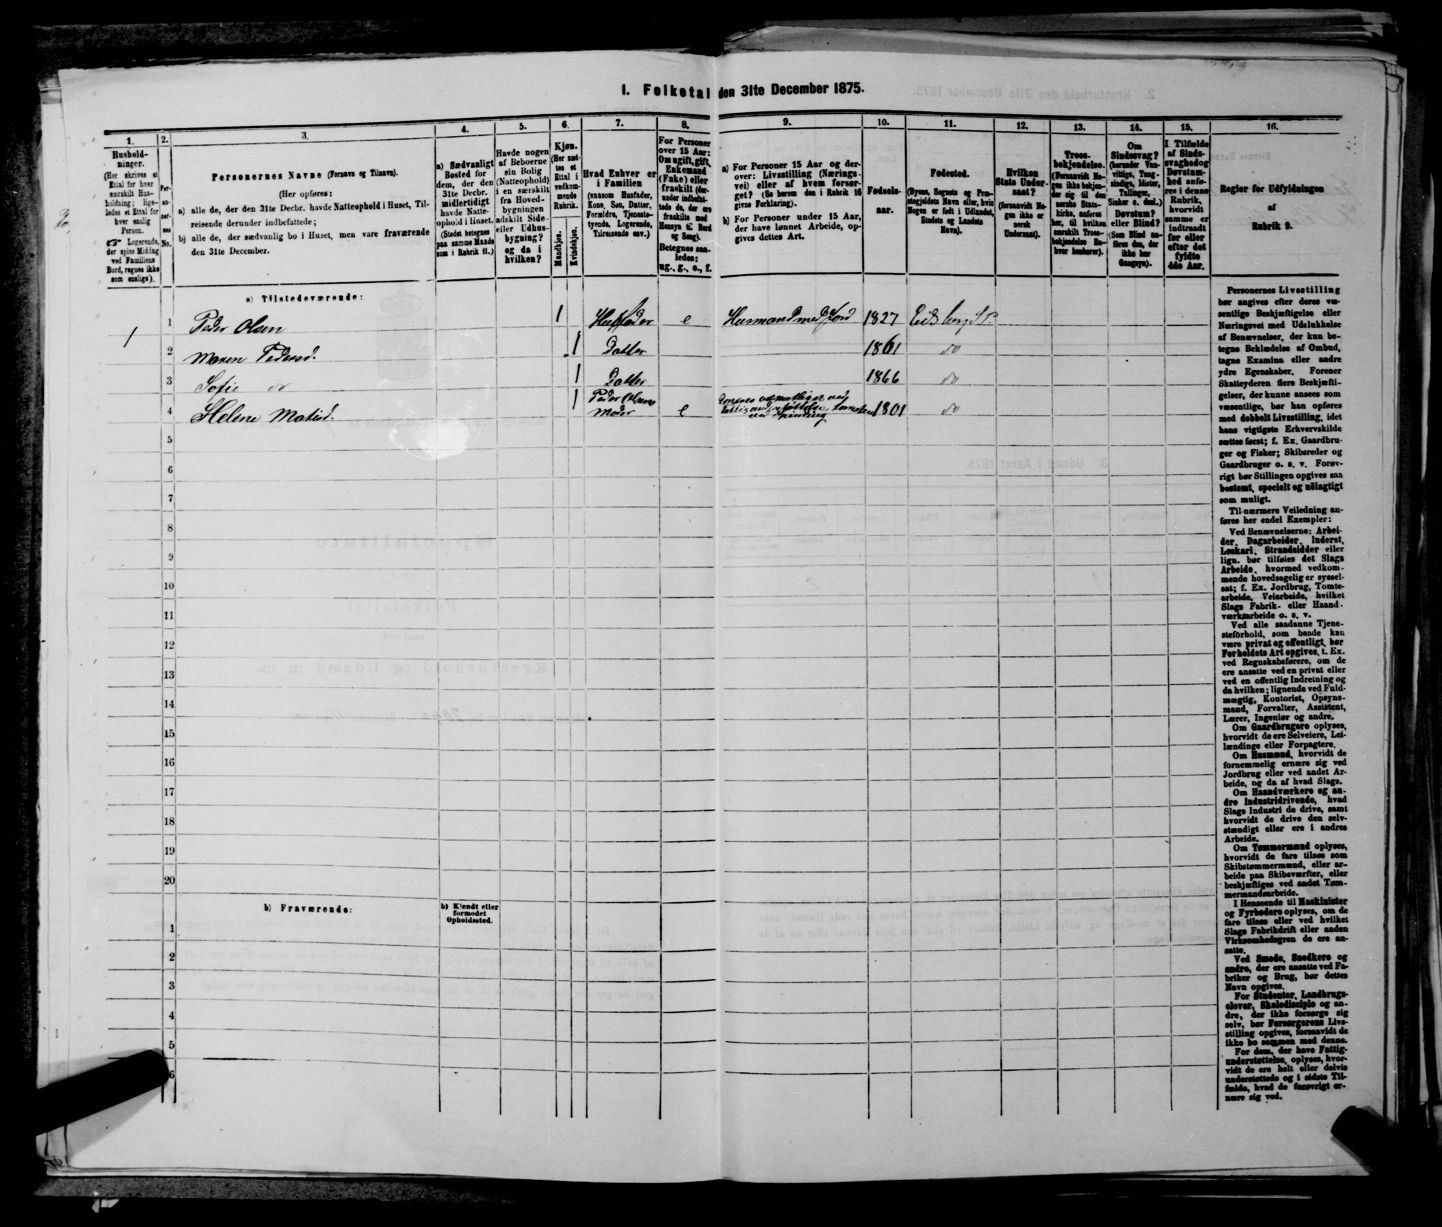 1. Folketal den 31te December 1875.
1. 2. 3. 4. 5. 6. 7. 8. 9. 10. 11. 12. 13. 14. 15. 16.
Hushold-
ninger.
(Her skrives et
Ettal for hver
særskilt Hus-
holdning; lige-
ledes et Ettal for
hver enslig
Person.
☞ Logerende,
der spise Middag
ved Familiens
Bord, regnes ikke
som enslige).
Per-
so-
ner-
nes
No.
Personernes Navne (Fornavn og Tilnavn).
(Her opføres:
a) alle de, der den 31te Decbr. havde Natteophold i Huset, Til-
reisende derunder indbefattede;
b) alle de, der sædvanlig bo i Huset, men vare fraværende
den 31te December.
a) Sædvanligt
Bosted for
dem, der den
31te Decbr.
midlertidigt
havde Natte-
ophold i Huset.
(Stedet betegnes
paa samme Maade
som i Rubrik 11.)
Havde nogen
af Beboerne
sin Bolig
(Natteophold)
i en særskilt
fra Hoved-
bygningen
adskilt Side-
eller Udhus-
bygning?
og da i
hvilken?
Kjøn.
(Her sæt-
tes et
Ettal i
vedkom-
mende
Rubrik.
Mandkjøn.
Kvindekjøn.
Hvad Enhver er
i Familien
(saasom Husfader,
Kone, Søn, Datter,
Forældre, Tjeneste-
tyende, Logerende,
Tilreisende osv.)
For Personer
over 15 Aar:
Om ugift, gift,
Enkemand
(Enke) eller
fraskilt (der-
under indbefat-
tede de, der ere
fraskilte med
Hensyn til Bord
og Seng).
Betegnes saa-
ledes:
ug., g., e., f.
a) For Personer 15 Aar og der-
over: Livsstilling (Nærings-
vei) eller af hvem forsør-
get? (Se herom den i Rubrik 16
givne Forklaring).
b) For Personer under 15 Aar,
der have lønnet Arbeide, op-
gives dettes Art.
Fødsels-
aar.
Fødested.
(Byens, Sognets og Præ-
stegjeldets Navn eller, hvis
Nogen er født i Udlandet,
Stedets og Landets
Navn).
Hvilken
Stats Under-
saat?
(forsaavidt No-
gen ikke er
norsk
Undersaat).
Troes-
bekjendelse.
(Forsaavidt No-
gen ikke bekjen-
der sig til den
norske Stats-
kirke, anføres
her, til hvilken
særskilt Troes-
bekjendelse En-
hver henhører).
Om
Sindssvag?
(herunder Van-
vittige, Tung-
sindige, Idioter,
Tullinger,
Sinker o. desl.)
Døvstum?
eller Blind?
(Som Blind an-
føres den, der
ikke har
Gangsyn).
I Tilfælde
af Sinds-
svaghed og
Døvstum-
hed anfø-
res i denne
Rubrik,
hvorvidt
samme er
indtraadt
før eller
efter det
fyldte
4de Aar.
Regler for Udfyldningen
af
Rubrik 9.
a) Tilstedeværende:
1 1 Peder Olsen 1 Husfader e Husmand med Jord 1827 Eidsberg S. P.
2 Maren Pedersd. 1 Datter 1861 do
3 Sofie do 1 Datter 1866 do
4 Helene Matisd. 1 Peder Olsens Moder e 1801 do
5
6
7
8
9
10
11
12
13
14
15
16
17
18
19
20
b) Fraværende:
b) Kjendt eller
formodet
Opholdssted.
1
2
3
4
5
6
Personernes Livsstilling
bør angives efter deres væ-
sentlige Beskjæftigelse eller
Næringsvei med Udelukkelse
af Benævnelser, der kun be-
tegne Beklædelse af Ombud,
tagne Examina eller andre
ydre Egenskaber. Forener
Skatteyderen flere Beskjæfti-
gelser, der kunne ansees som
væsentlige, bør han opføres
med dobbelt Livsstilling, idet
hans vigtigste Erhvervskilde
sættes først; f. Ex. Gaardbru-
ger og Fisker; Skibsreder og
Gaardbruger o. s. v. Forøv-
rigt bør Stillingen opgives saa
bestemt, specielt og nøiagtigt
som muligt.
Til nærmere Veiledning an-
føres her endel Exempler:
Ved Benævnelserne: Arbei-
der, Dagarbeider, Inderst,
Løskarl, Strandsidder eller
lign. bør tilføies det Slags
Arbeide, hvormed vedkom-
mende hovedsagelig er syssel-
sat; f. Ex. Jordbrug, Tomte-
arbeide, Veiarbeide, hvilket
Slags Fabrik- eller Haand-
værksarbeide o. s. v.
Ved alle saadanne Tjene-
steforhold, som baade kan
være privat og offentligt, bør
Forholdets Art opgives, t. Ex.
ved Regnskabsførere, om de
ere ansatte ved en privat eller
ved en offentlig Indretning og
da hvilken; lignende ved Fuld-
mægtig, Kontorist, Opsyns-
mand, Forvalter, Assistent,
Lærer, Ingeniør og andre.
Om Gaardbrugere oplyses,
hvorvidt de ere Selveiere, Lei-
lændinge eller Forpagtere.
Om Husmænd, hvorvidt de
fornemmelig ernære sig ved
Jordbrug eller ved andet Ar-
beide, og da af hvad Slags.
Om Haandværkere og an-
dre Industridrivende, hvad
Slags Industri de drive, samt
hvorvidt de drive den selv-
stændigt eller ere i andres
Arbeide.
Om Tømmermænd oplyses,
hvorvidt de fare tilsøs som
Skibstømmermænd, eller ar-
beide paa Skibsværfter, eller
beskjæftiges ved andet Tøm-
mermandsarbeide.
I Henseende til Maskinister
og Fyrbødere oplyses, om de
fare tilsøs eller ved hvilket
Slags Fabrikdrift eller anden
Virksomhedsgren de ere an-
satte.
Ved Smede, Snedkere og
andre, der ere ansatte ved Fa-
briker og Brug, bør dettes
Navn opgives.
For Studenter, Landbrugs-
elever, Skoledisciple og an-
dre, der ikke forsørge sig
selv, bør Forsørgerens Livs-
stilling opgives, forsaavidt de
ikke bo sammen med denne.
For dem, der have Fattig-
understøttelse, oplyses, hvor-
vidt de ere helt eller delvis
understøttede og i sidste Til-
fælde, hvad de forøvrigt er-
nære sig ved.